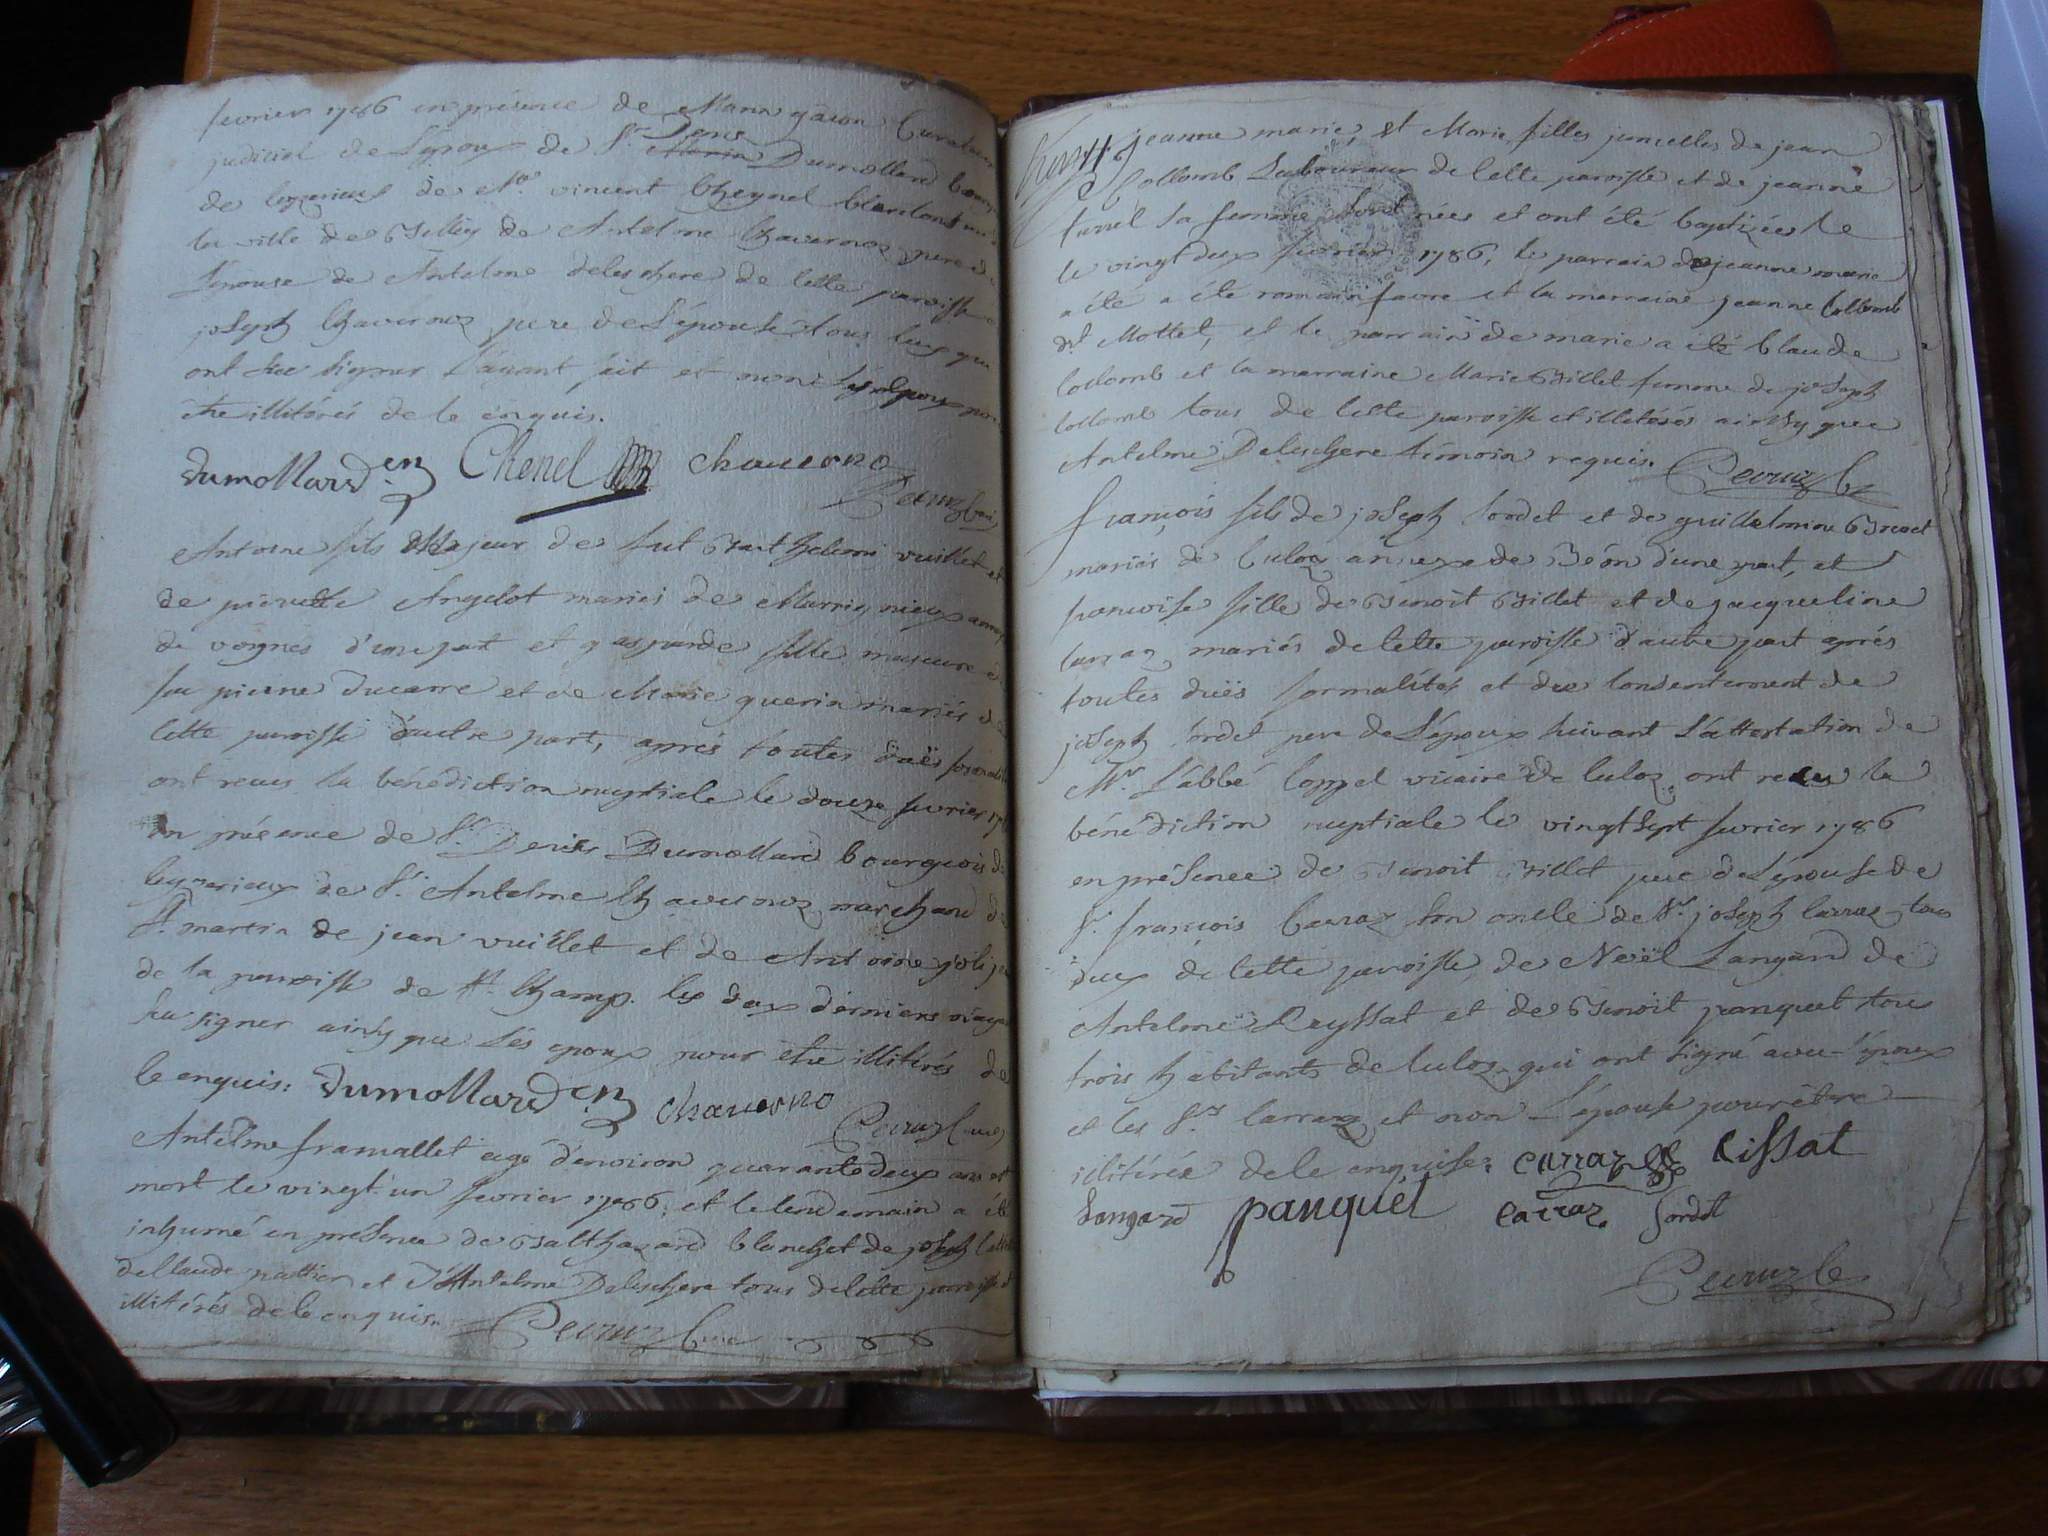 fevrier 1786 en présence de
judiciel de L'epoux de Sr. Denis Dumollard
de de vincent Cheynel
la ville de Belley de Antelme Chavernoz pere de
L'epouse de Antelme deleschere de cette paroisse
joseph Chavernoz pere de L'épouse tous
ont sçu signer L'ayant fait et non les epoux pour
etre illitérés de ce enquis.
Dumollard Chenel chaverno
Peeruz Curé
Antoine fils Majeur de feu Barthelemi vuillet et
de pierrette Angelot mariés de Marrignieux
de vognes d'une part et gasparde fille mineure de
feu pierre Ducarre et de Marie guerin mariés de
cette paroisse d'autre part, aprés toutes duës formalités
ont recus la bénédiction nuptiale le douze fevrier
en présence de Sr. Denis Dumollard bourgeois de
de Sr. Antelme Chavernoz marchand de
St. martin de jean vuillet et de Antoine
de la paroisse de St. Champ. les deux derniers
sçu signer ainsy que Les epoux pour etre illitérés de
ce enquis: Dumollard chaverno
Peeruz Curé
Antelme framallet agé d'environ quarante deux ans est
mort le vingt un fevrier 1786, et le lendemain a été
inhumé en présence de Balthazard blanchet de joseph
de Claude et d'Antelme Deleschere tous de cette paroisse et
illitérés de ce enquis.
Peeruz Curé
jeanne marie, et Marie filles jumelles de jean
Collomb Laboureur de cette paroisse et de jeanne
sa femme sont nées et ont été baptizées le
le vingt deux fevrier 1786, le parrain de jeanne marie
a été a été romain favre et la marraine jeanne Collomb
dt. Mottet, et le parrain de marie a été Claude
Collomb et la marraine Marie Billet femme de joseph
Collomb tous de cette paroisse et illitérés ainsy que
Antelme Deleschere témoin requis. Peeruz Cé
françois fils de joseph Sordet et de guillelmine
mariés de Culoz annexe de Béon d'une part, et
françoise fille de Benoit Billet et de jacqueline
Carraz mariés de cette paroisse d'autre part aprés
toutes duës formalités et du Consentement de
joseph Sordet pere de L'époux suivant L'attestation de
Mr. L'abbé Coppel vicaire de Culoz ont recu la
bénédiction nuptiale le vingt sept fevrier 1786
en présence de Benoit Billet pere de L'epouse de
Sr. françois Carraz son oncle de Sr. joseph Carraz tous
deux de cette paroisse, de Noël Langard de
Antelme Reyssat et de Benoit panquet tous
trois habitants de Culoz qui ont signé avec L'époux
et les Srs. Carraz et non L'épouse pour être
illitérée de ce enquise. carraz Rissat
Langard panquet carraz Sordet
Peeruz Cé